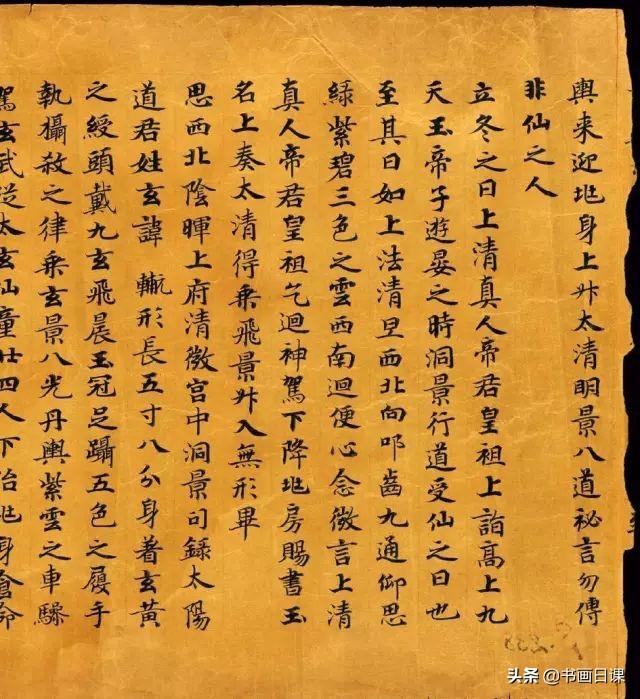 輿来迎地身上升太清明景八道祕言勿傳
非仙之人
立冬之日上清真人帝君皇祖上詣高上九
天玉帝子遊晏之時洞景行道受仙之日也
至其日如上法清旦西北向叩齒九通仰思
綠紫碧三色之雲西南迴便心念微言上清
真人帝君皇祖乞迴神駕下降地房賜書玉
名上奏太清得乗飛景升入無形畢
思西北陰暉上府清微宮中洞景司錄太陽
道君姓玄諱 輙形長五寸八分身著玄黃
之綬頭戴九玄飛晨玉冠足躡五色之履手
執攝殺之律乗玄景八光丹輿紫雲之車驂
駕玄武従太玄仙童廿四人下治地身命
头条 @书画日课